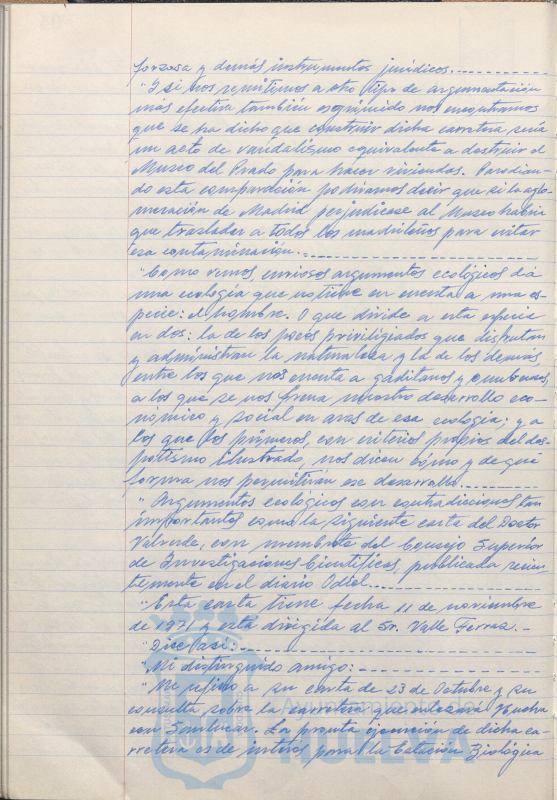 forzosa y demás instrumentos jurídicos.------------
"Y si nos remitimos a otro tipo de argumentación
más efectiva también esgrimido nos encontramos
que se ha dicho que construir dicha carretera sería
un acto de vandalismo equivalente a destruir el
Museo del Prado para hacer viviendas. Parodian-
do esta comparación podríamos decir que si la aglo-
meración de Madrid perjudicase al Museo habría
que trasladar a todos los madrileños para evitar
esa contaminación.------------
"Como vemos curiosos argumentos ecológicos de
una ecología que no tiene en cuenta a una es-
pecie: el hombre. O que divide a esta especie
en dos: la de los pocos priviligiados que disfrutan
y administran la naturaleza y la de los demás,
entre los que nos cuenta a gaditanos y onubenses,
a los que se nos frena nuestro desarrollo eco-
nómico y social en aras de esa ecología; y a
los que los primeros, con criterios propios del des-
potismo ilustrado, nos dicen cómo y de qué
forma nos permitirán ese desarrollo.------------
"Argumentos ecológicos con contradiciones tan
importantes como la siguiente carta del Doctor
Valverde, con membrete del Consejo Superior
de Investigaciones Científicas, publicada recien-
temente en el diario Odiel.------------
"Esta carta tiene fecha 11 de noviembre
de 1971 y está dirigida al Sr. Valle Ferraz.-
"Dice así:------------
"Mi distinguido amigo:------------
"Me refiero a su carta de 23 de Octubre y su
consulta sobre la carretera que enlazará Huelva
con Sanlúcar. La pronta ejecución de dicha ca-
rretera es de interés para la Estación Biológica
Ayuntamiento de
HUELVA